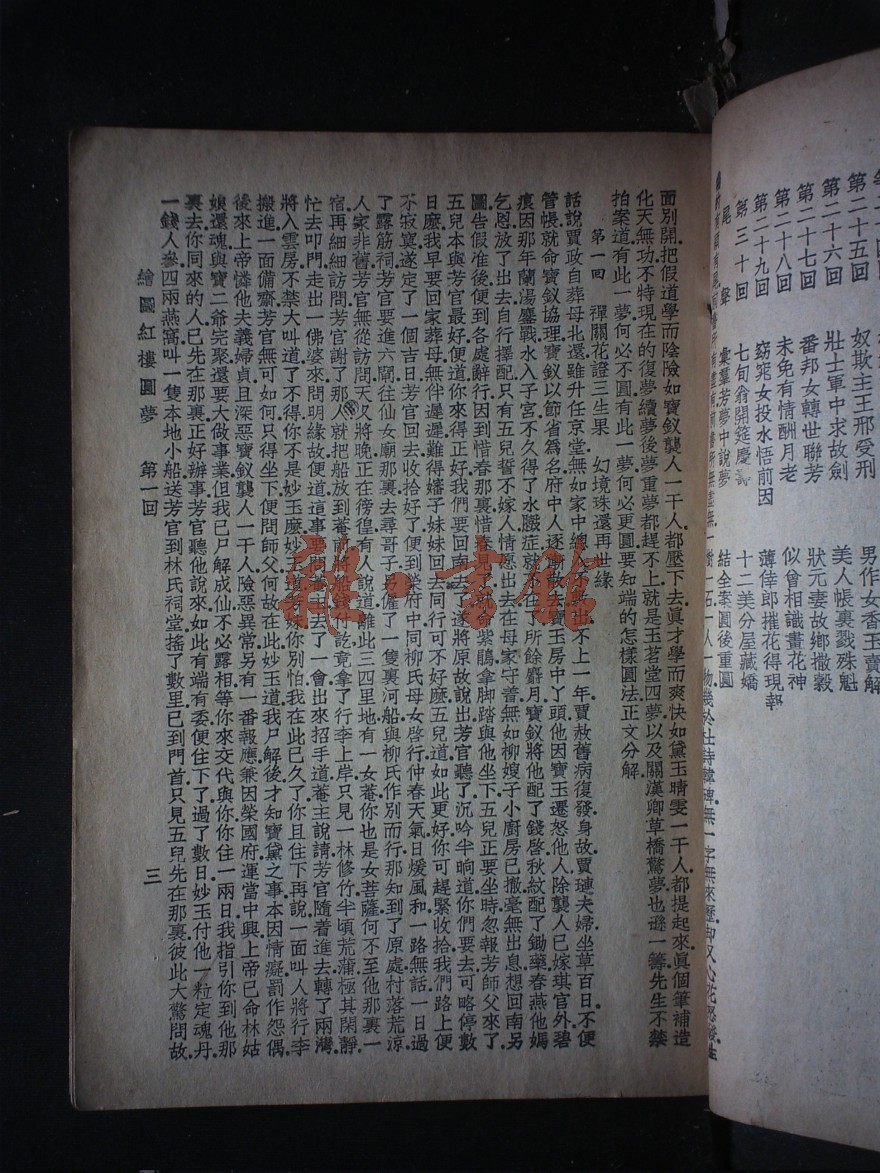 第二十五回　奴欺主王邢受刑　男作女香玉賣解
第二十六回　壯士軍中求故劍　美人帳裏戮殊魁
第二十七回　番邦女轉世聯芳　狀元妻故鄉撒穀
第二十八回　未免有情酬月老　似曾相識畫花神
第二十九回　窈窕女投水悟前因　薄倖郎摧花得現報
第三十回　七旬翁開筵慶壽　十二美分屋藏嬌
尾聲　彙羣芳夢中說夢　結全案圓後重圓
一樹一石一人一物幾於杜詩韓碑無一字無來歷却又心花怒發
面別開把假道學而陰險如寶釵襲人一干人都壓下去眞才學而爽快如黛玉晴雯一干人都提起來眞個筆補造
化天無功不特現在的復夢續夢後夢重夢都趕不上就是玉茗堂四夢以及關漢卿草橋驚夢也遜一籌先生不禁
拍案道有此一夢何必不圓有此一夢何必更圓要知端的怎樣圓法正文分解
第一回　禪關花證三生果　幻境珠還再世緣
話說賈政自葬母北還雖升任京堂無如家中總入不敷出不上一年賈赦舊病復發身故賈璉夫婦坐草百日不便
管帳就命寶釵協理寶釵以節省爲名府中人逐漸散去寶玉房中丫頭他因寶玉遷怒他人除襲人已嫁琪官外碧
痕因那年蘭湯鏖戰水入子宮不久得了水臌症就死了所餘麝月寶釵將他配了錢啓秋紋配了鋤藥春燕他媽
乞恩放了出去自行擇配只有五兒誓不嫁人情愿出去在母家守着無如柳嫂子小廚房已撤毫無出息想回南另
圖告假准後便到各處辭行因到惜春那裏惜春見了就命紫鵑拿脚踏與他坐下五兒正要坐時忽報芳師父來了
五兒本與芳官最好便道你來得正好我們要回南去了遂將原故說出芳官聽了沉吟半晌道你們要去可略停數
日麽我早要回家葬母無伴遲遲難得嬸子妹妹回去同行可不好麽五兒道如此更好你可趕緊收拾我們路上便
不寂寞遂定了一個吉日芳官回去收拾好了便到柳府中同柳氏母女啓行仲春天氣日煖風和一路無話一日過
了露筋祠芳官要進六閘往仙女廟那裏去尋哥子另僱了一隻裏河船與柳氏作別而行那知到了原處村落荒涼
人家非舊芳官無從訪問天又將晚正在徬徨有人說道離此三四里地有一女菴你也是女菩薩何不至他那裏一
宿再細細訪問芳官謝了那人就把船放到菴前將船錢付訖竟拿了行李上岸只見一林修竹半頃荒蒲極其閑靜
忙去叩門走出一佛婆來問明緣故便道這事要問菴主去了一會出來招手道菴主說請芳官隨着進去轉了兩灣
將入雲房不禁大叫道了不得你不是妙玉麽妙玉道芳妹你別怕我在此已久了你且住下再說一面叫人將行李
搬進一面備齋芳官無可如何只得坐下便問師父何故在此妙玉道我尸解後才知寶黛之事本因情癡罰作怨偶
後來上帝憐他夫義婦貞且深惡寶釵襲人一干人險惡異常另有一番報應兼因榮國府運當中興上帝已命林姑
娘還魂與寶二爺完聚還要大做事業但我已尸解成仙不必露相等你來交代與你你住一兩日我指引你到他那
裏去你同來的人已先在那裏正好辦事芳官聽他說來如此有端有委便住下了過了數日妙玉付他一粒定魂丹
一錢人參四兩燕窩叫一隻本地小船送芳官到林氏祠堂搖了數里已到門首只見五兒先在那裏彼此大驚問故
繪圖紅樓圓夢　第一回　三